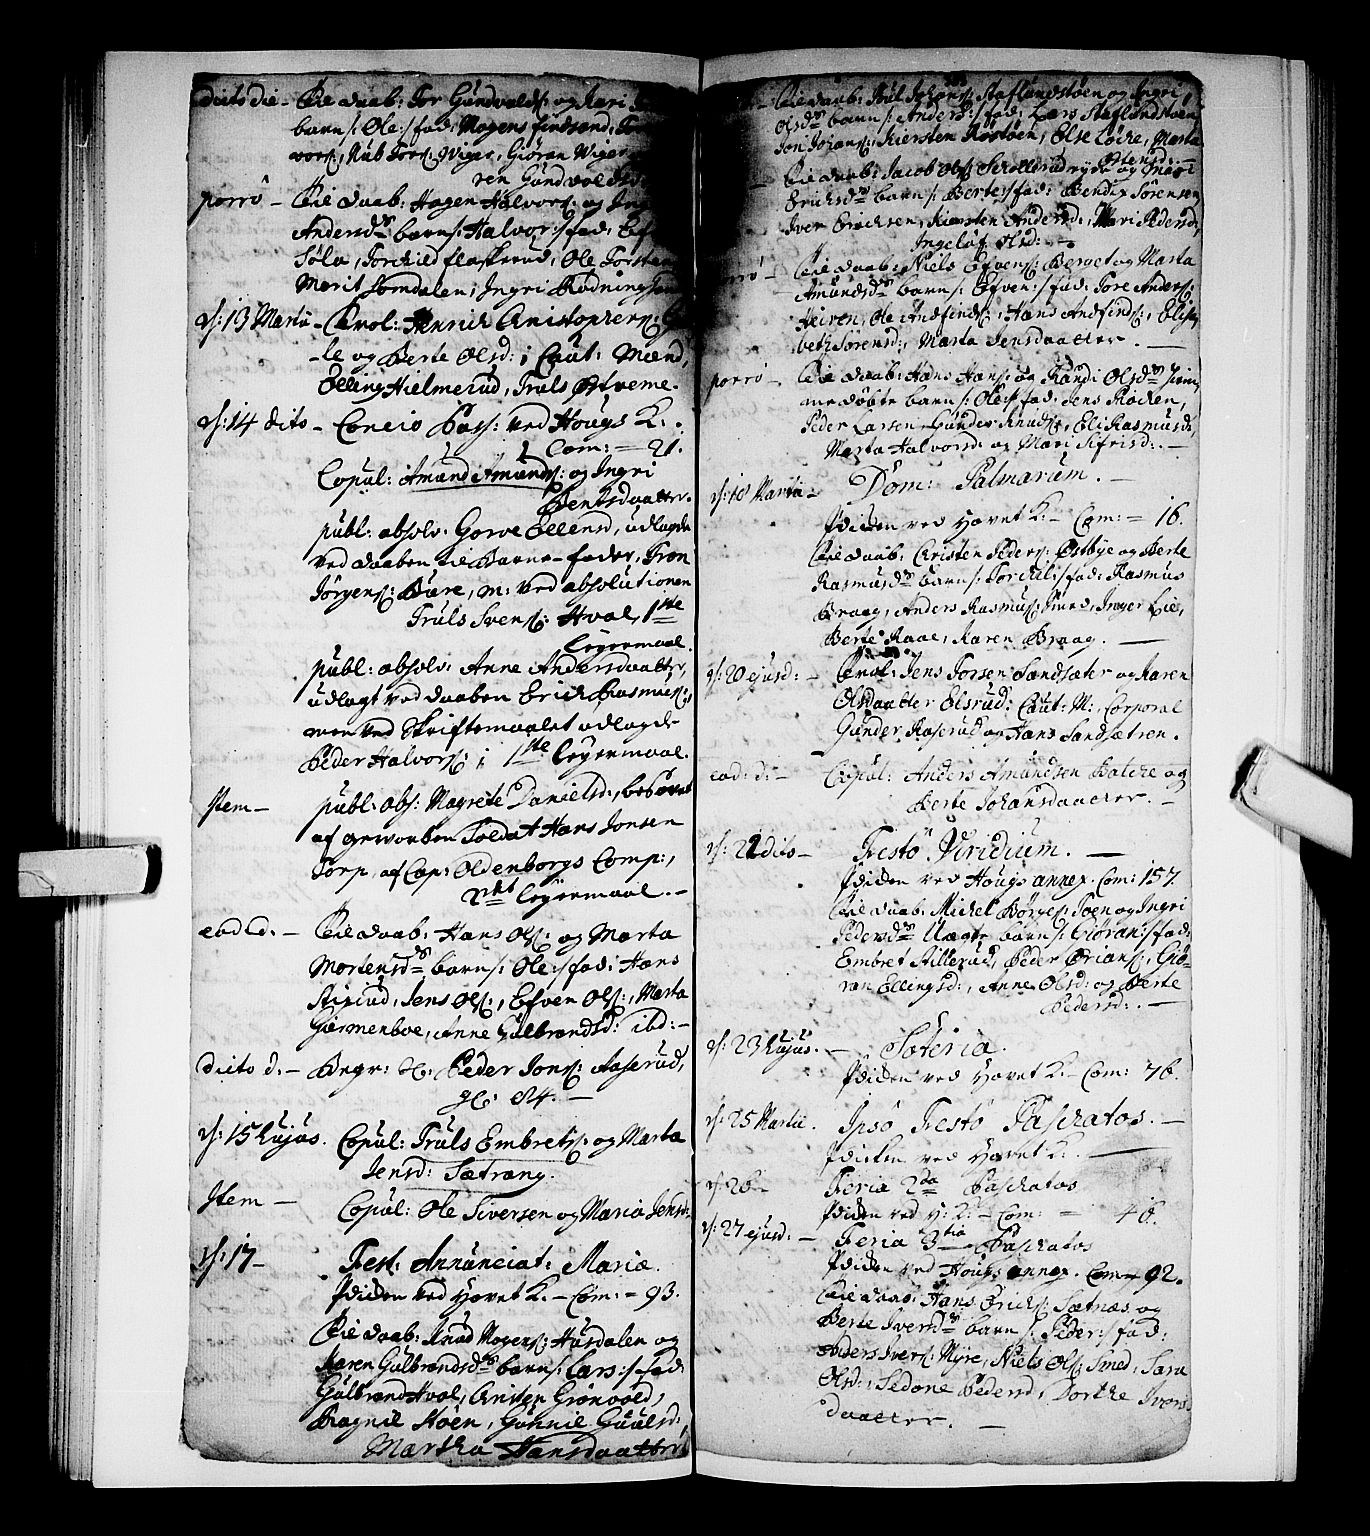 dicto die – Eie daab: Tor Gundvalds: og Kari
barn /: Ole :/ fad: Mogens findsand,
Wiger, Giøran Wiger
ren Gundvoldsd
porrò – Eie daab: Hagen Halvors: og
Andersdr barn /: Halvor :/ fad:
Torchild flaskerud, Ole Torsten
Marit Lomdalen, Ingri Rødningsand
d: 13 Martii – Trol: Henrich Cristophers:
le og Berte Olsd: i Caut: Mænd,
Elling Hielmerud, Truls Østveme.
d: 14 dito – Concio Pass: ved Hougs K:.
Com: = 21.
Copul: Amund Amunds: og Ingri
Bentsdaatter.
publ: absolv: Gorve Ellensd, udlagde
ved daaben til Barne-fader, Tron
Jörgens: Bure, m: ved absolutionen
Truls Svens: Hval, 1ste
Leyermaal.
publ: absolv: Anne Andersdaatter,
udlagt ved daaben Erich Rasmus:,
men ved Skriftemaalet udlagde
Peder Halvors: i 1ste Leyermaal.
Item – publ: abs: Magrete Danielsd:, besovet
af geworben Soldat Hans Jonsen
Torp, af Cap: Oldenborgs Comp:,
2det Leyermaal. –
eod: d: – Eie daab: Hans Ols: og Marta
Mortensdr barn /: Ole :/ fad: Hans
Stigrud, Jens Ols:, Efven Ols:, Marta
Garmenboe, Anne Gulbrandsd: ibd: –
dicto d: – Begr: Peder Jons: Aaserud,
d: 15 hujus. Copul: Truls Embrets: og Marta
Jensd: Sætrang.
Item – Copul: Ole Siversen og Maria Jensd:
d: 17 – Fest: Annunciat: Mariæ.
Prdiken ved Hovet K. – Com: = 93.
Eie daab: Knud Mogens: Husdalen og
Karen Gulbrandsdr barn /: Lars :/ fad:
Gulbrand Hval, Cristen Grønvold,
Ragnil Hoen, Gunnil Guulsd,
Martha Hansdaatter
Eie daab: Poul Johans: Staflundstøen og Ingri
Olsdr barn /: Anders :/ fad: Lars Staflundstøen
Jon Johans:, Kiersten Røstøen, Else Løcke, Marta
Ostensd: –
Eie daab: Jacob Ols: Skollerudrye og Mari
Erichsdr barn /: Berte :/ fad: Bendix Sørensen,
Iver Erichsen, Kiersten Andersd:, Mari Pedersd,
Ingeløf Olsd: –
porrò – Eie daab: Niels Efvens: Berget og Marta
Amundsdr barn /: Efven :/ fad: Tore Anders:
Heiren, Ole Andfinds:, Hans Andfinds:, Elisa
beth Sorensd:, Marta Jensdaatter. –
porrò – Eie daab: Hans Hans: og Randi Olsdr
me døbte barn /: Ole :/ fad: Jens Moen,
Peder Larsen, Gunder Knuds:, Eli Rasmusd,
Marta Halvorsd: og Mari Sifrisd:. –
d: 18 Martii – Dom: Palmarum. –
Prdiken ved Hovet K. – Com: = 16.
Eie daab: Christen Peders: Østbye og Berte
Rasmusdr barn /: Torchil :/ fad: Rasmus
Braag, Anders Rasmus: Inger Lie,
Berte Raae, Karen Braag. –
d: 20 ejusd: – Trol: Jens Torsen Sandsæter og Karen
Olsdaatter Elsrud: Caut: M: Corporal
Gunder Raserud og Hans Sandsætren.
eod: d: – Copul: Anders Amundsen Balche og
Berte Johansdaatter. –
d: 22 dito – Festô Viridium. –
Prdiken ved Hougs annex. Com: 157.
Eie daab: Michel Børges: Toen og Ingri
Pedersdr Uægte barn /: Giøran :/ fad:
Embret Stillerud, Peder Brians:, Giø-
ran Ellingsd:, Anne Olsd: og Berte
Pedersd:. –
d: 23 hujus. – Soteria.
Prdiken ved Hovet K. – Com: 76.
d: 25 Martii. Ipsô Festô Paschatos. –
Prdiken ved Hovet K. –
d: 26 – Feria 2da Paschatos
Prdiken ved H: K: – Com: = 48.
d: 27 ejusd: – Feria 3tia Paschatos
Prdiken ved Hougs annex. Com = 92.
Eie daab: Hans Erichs: Sætnæs og
Berte Iversdr barn /: Peder :/ fad:
Anders Ivers: Myre, Niels Ols: Smed, Sara
Olsd:, Sedone Pedersd, Dorthe Ivers
daatter. –